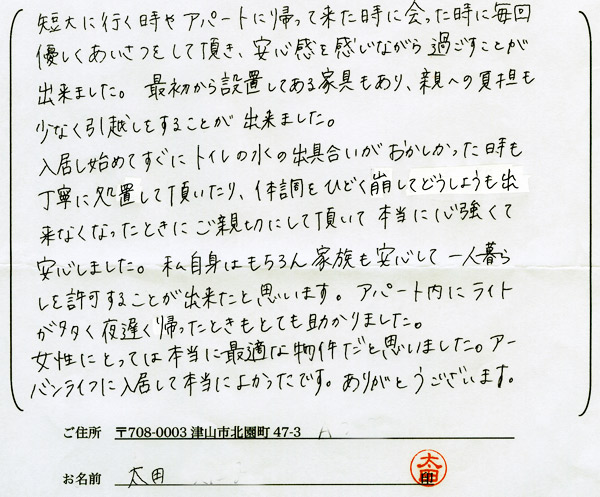 短大に行く時やアパートに帰って来た時に会った時に毎回
優しくあいさつをして頂き、安心感を感じながら過ごすことが
出来ました。最初から設置してある家具もあり、親への負担も
少なく引越しをすることが出来ました。
入居し始めてすぐにトイレの水の出具合いがおかしかった時も
丁寧に処置して頂いたり、体調をひどく崩してどうしようも出
来なくなったときにご親切にして頂いて本当に心強くて
安心しました。私自身はもちろん家族も安心して一人暮ら
しを許可することが出来たと思います。アパート内にライト
が多く夜遅く帰ったときもとても助かりました。
女性にとっては本当に最適な物件だと思いました。アー
バンライフに入居して本当によかったです。ありがとうございます。
ご住所 〒708-0003 津山市北園町 47-3
お名前 太田 印
太田